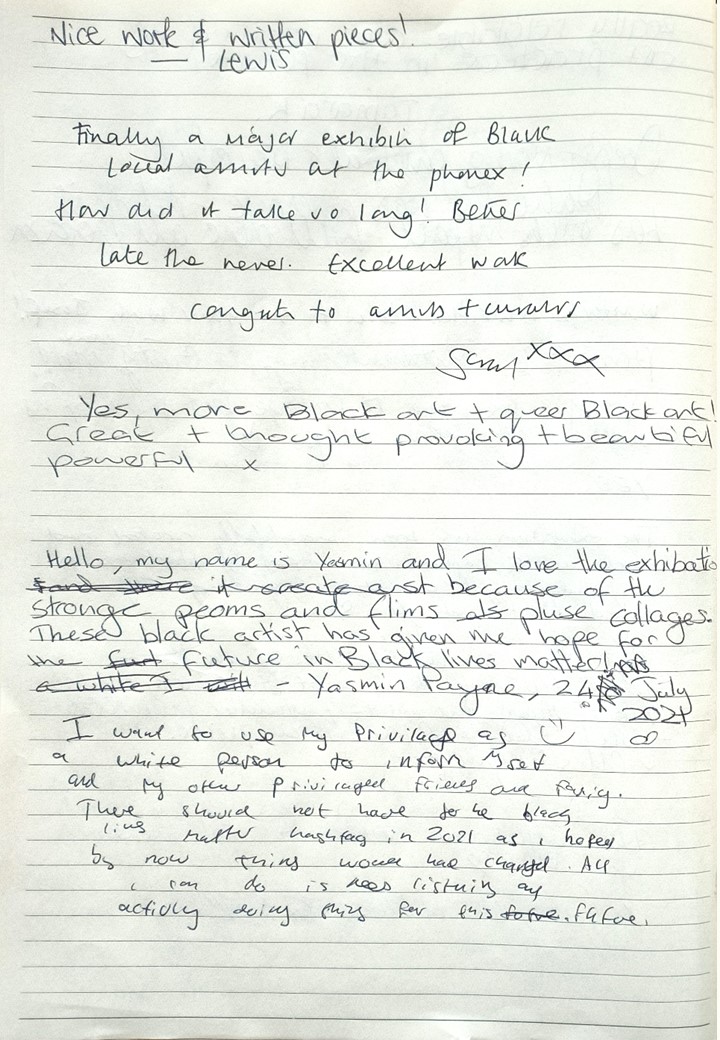 Nice work & written pieces!
— Lewis
Finally a major exhibitn of Black
Local artists at the phonex!
How did it take so long! Better
late the never. Excellent work
congrats to artists + curators
xxx
Yes, more Black art + queer Black art!
Great + thought provoking + beautiful
powerful x
Hello, my name is Yasmin and I love the exhibatio
it create art because of the
stronge peoms and flims als pluse collages.
These black artist has given me hope for
the fut fueture in Black lives matter!
a white I - Yasmin Payne, 24 July
2021
I want to use my Privilage as
a white person to inform myself
and my other priviraged friends and family.
There should not have to be black
lives matter hashtag in 2021 as i hoped
by now things would have changed. All
i can do is keep listning and
activly doing things for this future.